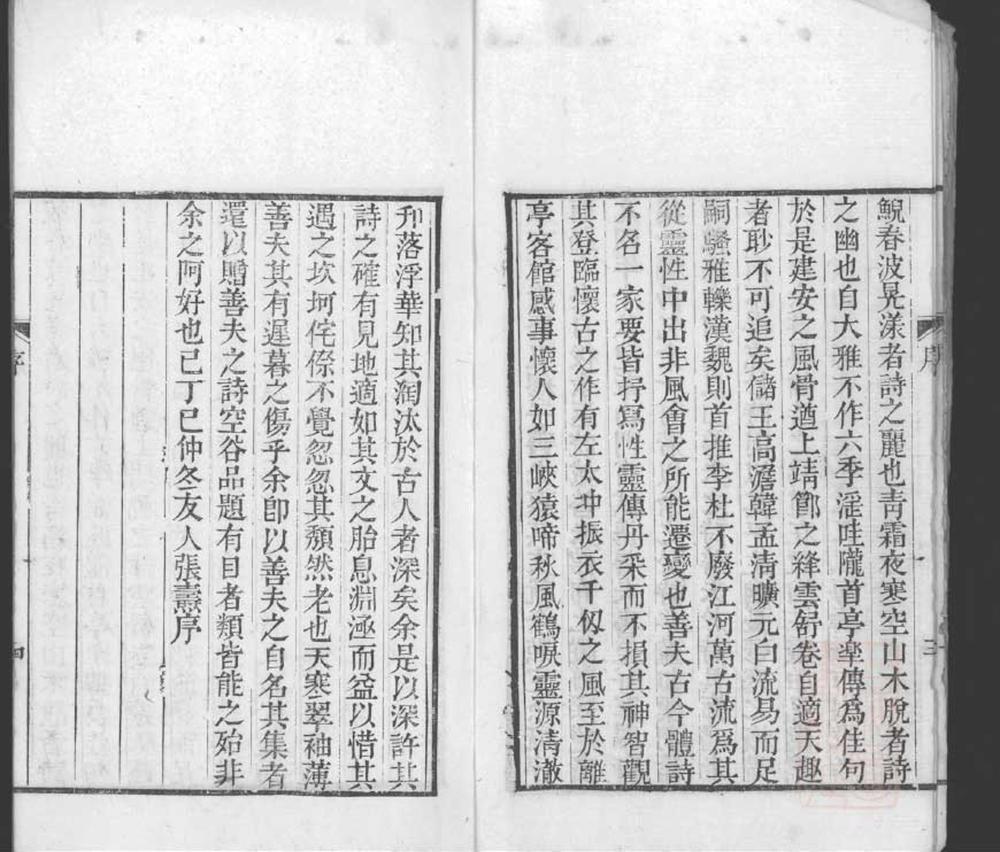 鯢春波晃漾者詩之麗也青霜夜寒空山木脫者詩
之幽也自大雅不作六季淫哇隴首亭皋傳為佳句
於是建安之風骨遒上靖節之絳雲舒卷自適天趣
者眇不可追矣儲王高澹韓孟清曠元白流易而足
嗣騷雅轢漢魏則首推李杜不廢江河萬古流為其
從靈性中出非風會之所能遷變也善夫古今體詩
不名一家要皆抒寫性靈傳丹采而不損其神智觀
其登臨懷古之作有左太沖振衣千仞之風至於離
亭客館感事懷人如三峽猿啼秋風鶴唳靈源清澈
刊落浮華知其淘汰於古人者深矣余是以深許其
詩之確有見地適如其文之胎息淵涵而益以惜其
遇之坎坷侘傺不覺忽忽其頹然老也天寒翠袖薄
善夫其有遲暮之傷乎余卽以善夫之自名其集者
還以贈善夫之詩空谷品題有目者類皆能之殆非
余之阿好也已丁巳仲冬友人張燾序
序
三
序
四